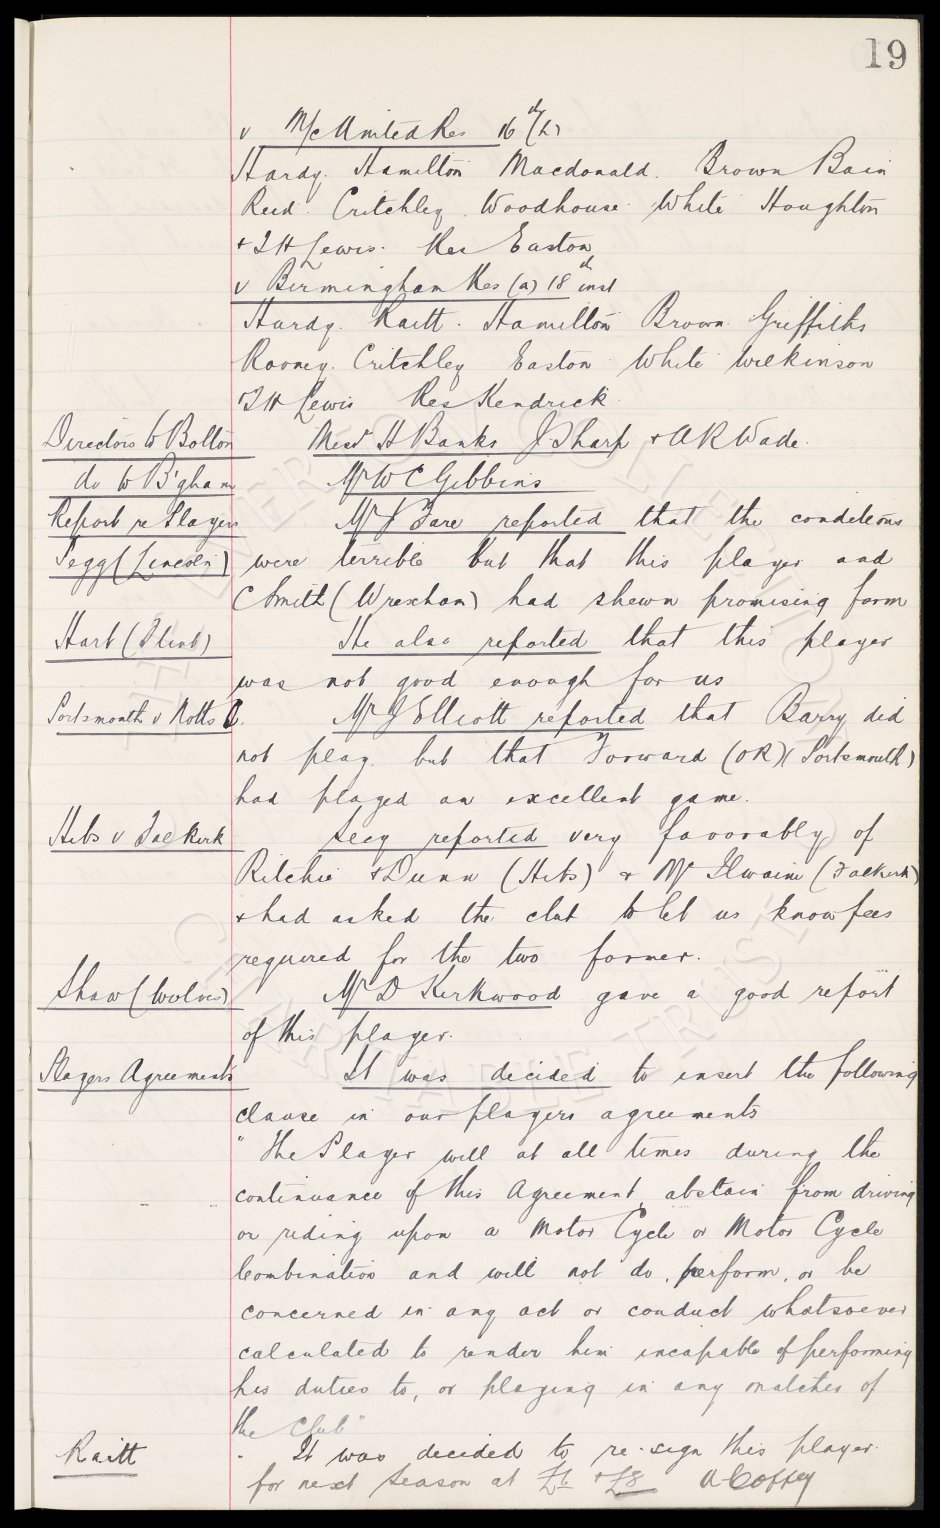 19
v Mc United Res 16th (h)
Hardy. Hamilton Macdonald. Brown Bain
Reid. Critchley. Woodhouse. White Houghton
+ T H Lewis. Res Easton
v Birmingham Res (a) 18th inst
Hardy. Raitt. Hamilton Brown Griffiths
Rooney. Critchley Easton White Wilkinson
T H Lewis Res Kendrick.
Directors to Bolton Messrs H Banks J Sharp + A R Wade.
do to B'gham Mr W C Gibbins
Report re Players Mr J Fare reported that the conditions
Pegg (Lincoln) were terrible but that this player and
C Smith (Wrexham) had shewn promising form
Hart (Flint) He also reported that this player
was not good enough for us
Portsmouth v Notts C. Mr J Elliott reported that Barry did
not play but that Forward (OR) (Portsmouth)
had played an excellent game.
Hibs v Falkirk Secy reported very favorably of
Ritchie + Dunn (Hibs) + Mc Ilwaine (Falkirk)
+ had asked the club to let us know fees
required for the two former.
Shaw (Wolves) Mr D Kirkwood gave a good report
of this player.
Players Agreements It was decided to insert the following
clause in our players agreements
"The Player will at all times during the
continuance of this Agreement, abstain from driving
or riding upon a Motor Cycle or Motor Cycle
Combination and will not do, perform, or be
concerned in any act or conduct whatsoever
calculated to render him incapable of performing
his duties to, or playing in any matches of
the Club"
Raitt - It was decided to re-sign this player.
for next season at £6 + £8 A Coffey